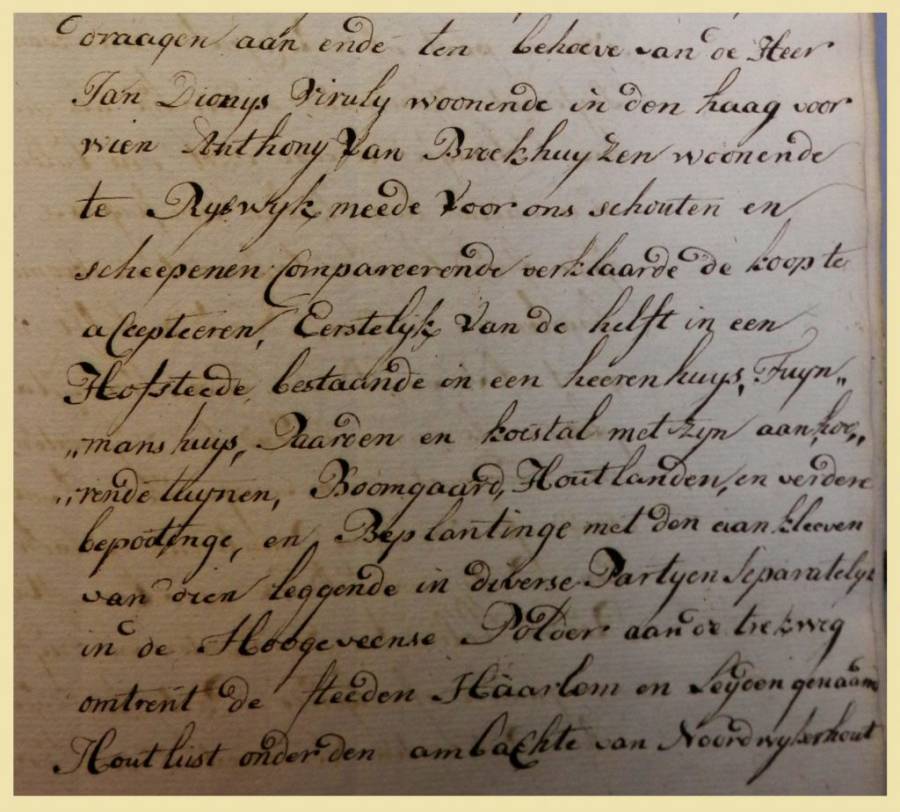 draagen aan ende ten behoeve van de Heer
Jan Dionys Viruly woonende in den haag voor
wien Anthony Van Broekhuyzen woonende
te Ryswyk, meede Voor ons schouten en
scheepenen Compareerende verklaarde de koop te
accepteeren, Eerstelijk Van de helft in een
Hofsteede, bestaande in een heerenhuys, Tuyn„
„manshuys, Paarden en koestal met zyn aanhoo„
„rende tuynen, Boomgaard, Houtlanden, en verdere
bepootinge, en Beplantinge met den aankleeven
van dien leggende in diverse Partyen Separatelyk
in de Hoogeveense Polder aan de trekweg
omtrent de steeden Haarlem en Leyden genaamt
Houtlust onder den ambachte van Noordwykerhout